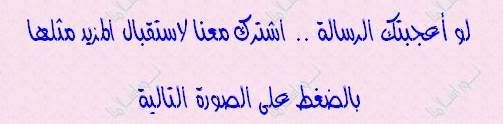 لو أعجبتك الرسالة .. اشترك معنا لاستقبال المزيد مثلها
بالضغط على الصورة التالية